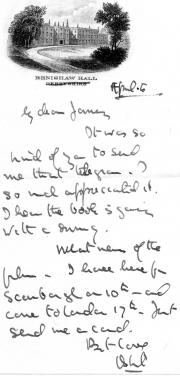 RENISHAW HALL
DERBYSHIRE
April 6
My dear James
It was so
kind of you to send
me that telegram. I
so much appreciated it.
I hear the book is going
with a swing.
What news of the
film. I leave here for
Scarborough on 10th – and
come to London 17th. Just
send me a card.
Best love